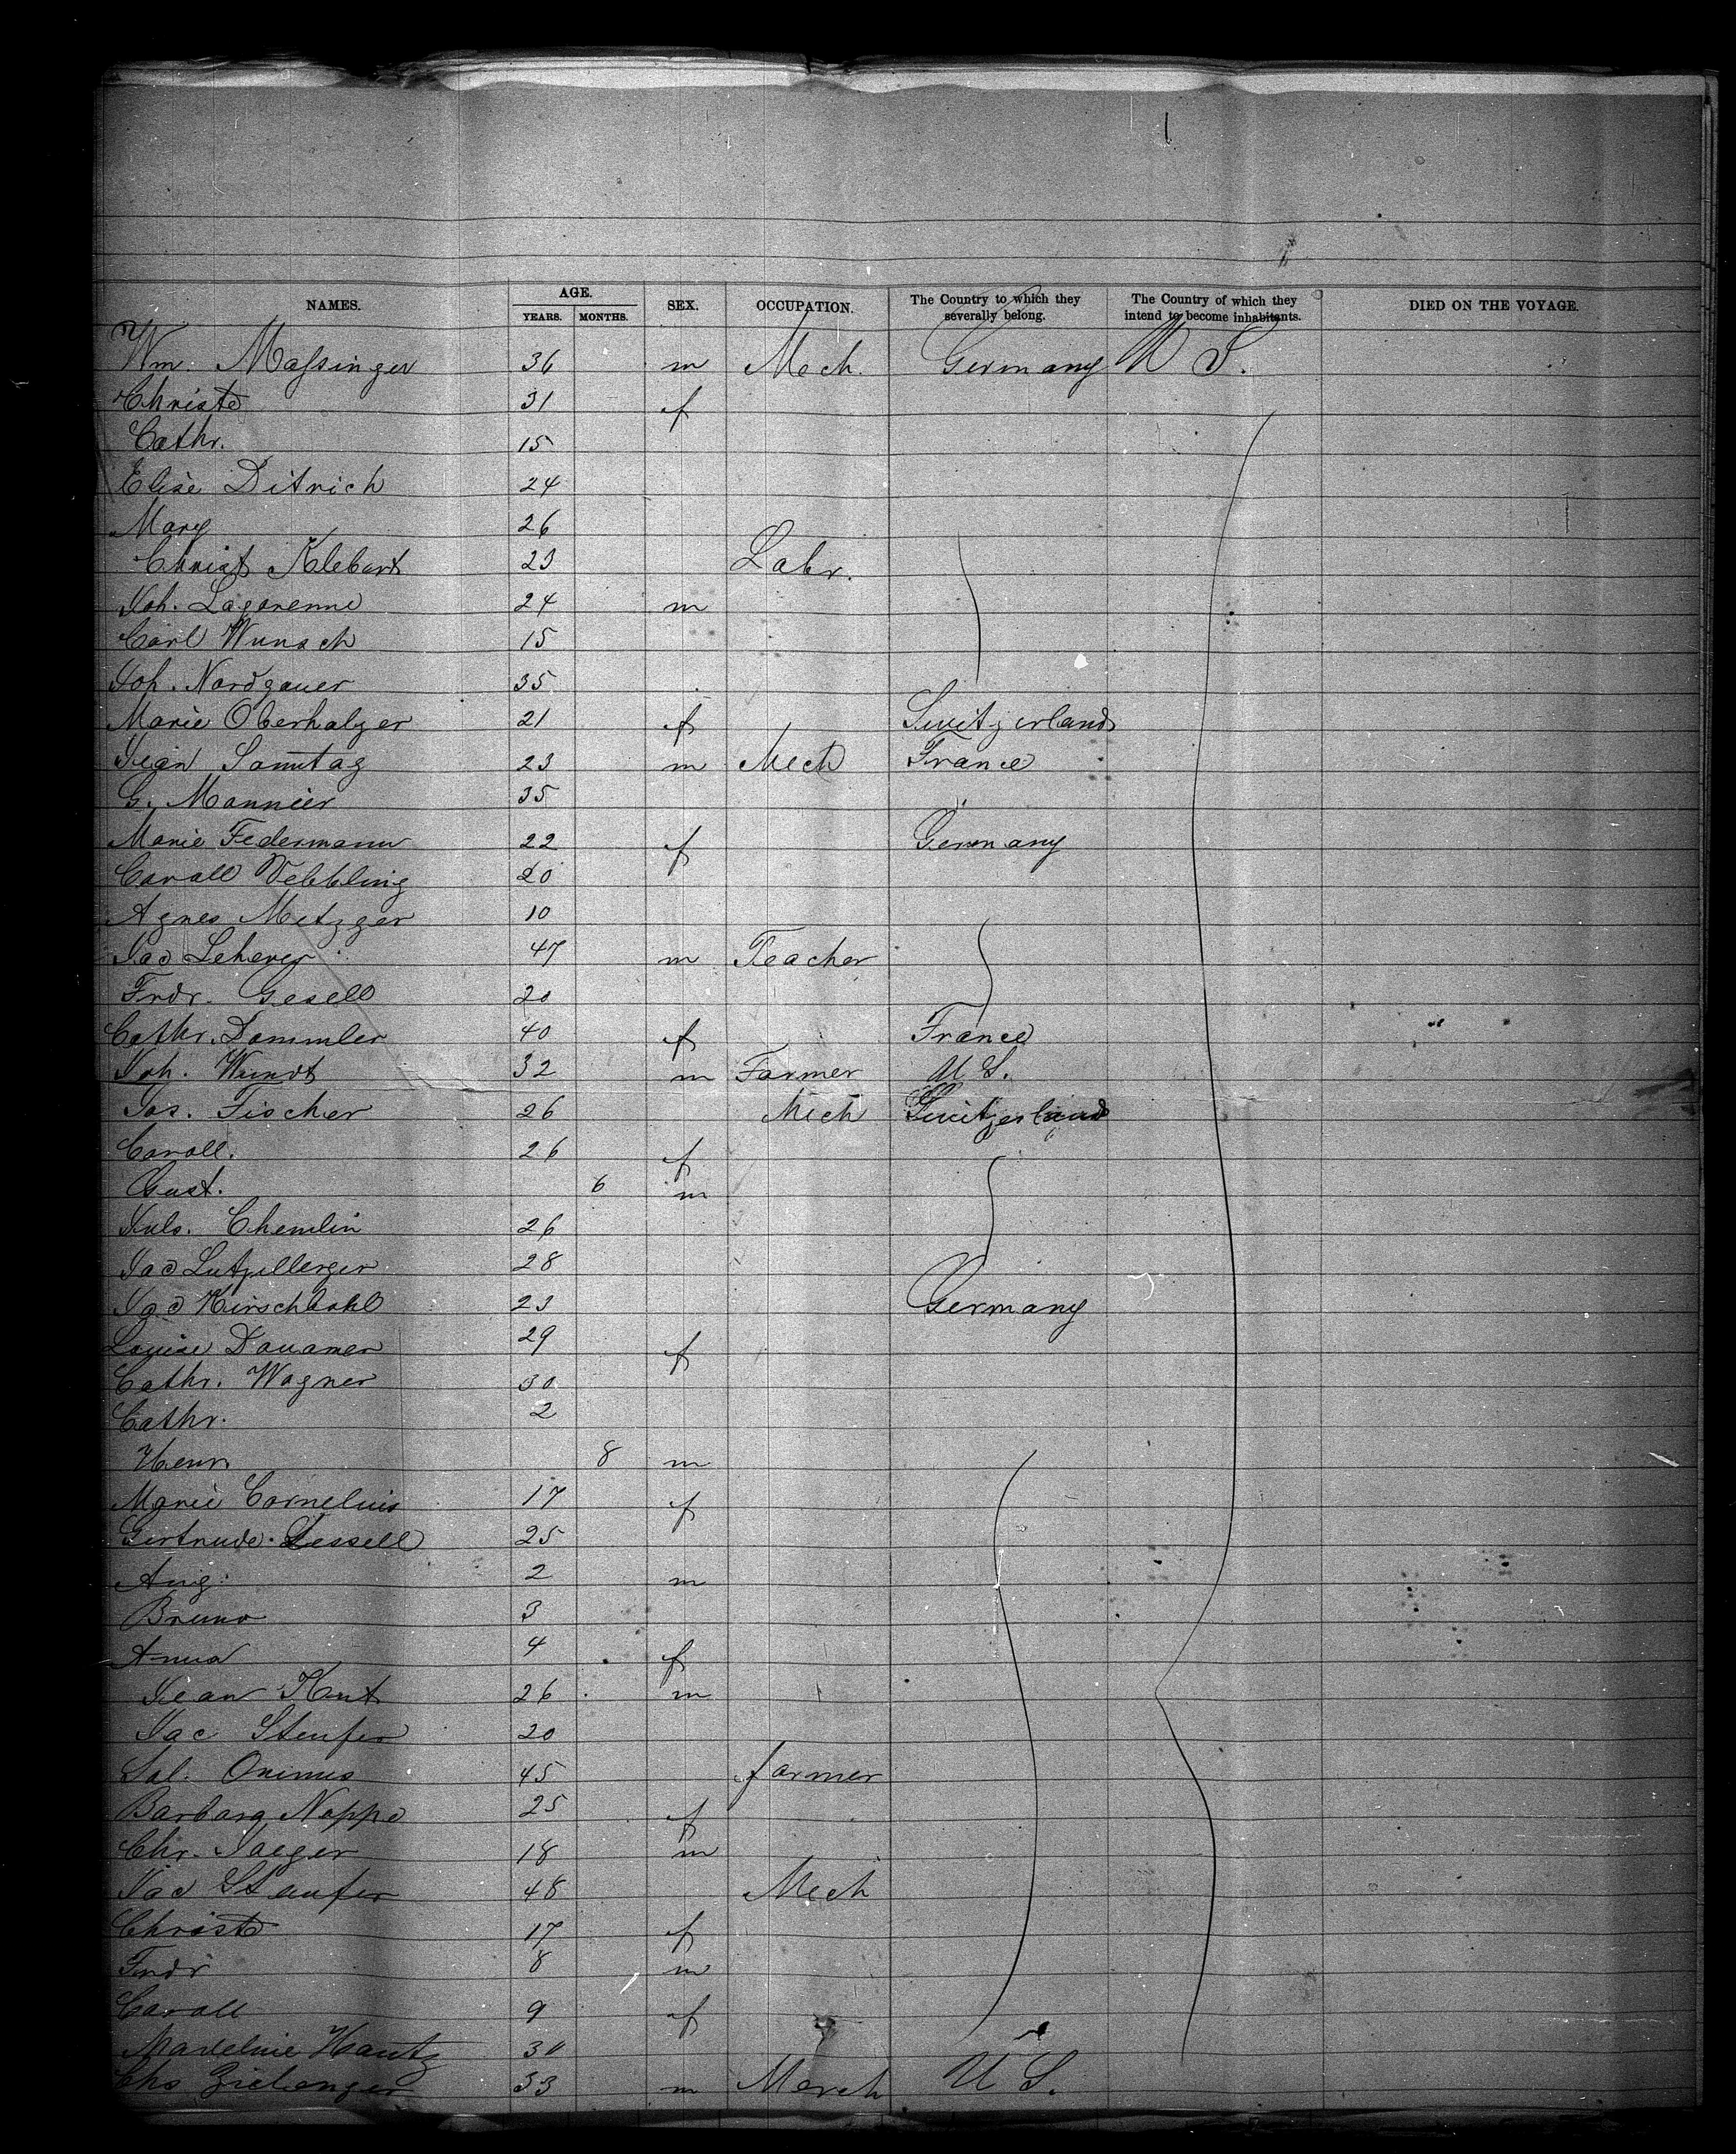 NAMES. AGE. YEARS. MONTHS. SEX. OCCUPATION. The Country to which they severally belong. The Country of which they intend to become inhabitants. DIED ON THE VOYAGE.
Wm. Massinger 36 m Mech. Germany U S.
Christe 31 f
Cathr. 15
Elise Ditrich 24
Mary 26
Christ Klebart 23 Labr.
Joh. Lagarenne 24 m
Carl Wunsch 15
Joh. Nordgauer 35
Marie Oberhalzer 21 f Switzerland
Jean Sonntag 23 m Mech France
G. Monnier 35
Marie Federmann 22 f Germany
Caroll Vebbling 20
Agnes Metzger 10
Jac Leherer 47 m Teacher
Frdr. Gesell 20
Cathr. Dammler 40 f France
Joh. Wundt 32 m Farmer U S.
Jos. Fischer 26 Mech Switzerland
Caroll. 26 f
Gust. 6 m
Juls. Chemlin 26
Jac Lutzelberger 28
Jac Hirschbohl 23 Germany
Louise Douamer 29 f
Cathr. Wagner 30
Cathr. 2
Henr. 8 m
Marie Cornelius 17 f
Gertrude Lessell 25
Aug. 2 m
Bruno 3
Anna 4 f
Jean Kent 26 m
Jac Staufer 20
Sal. Onimus 45 farmer
Barbara Noppe 25 f
Chr. Jaeger 18 m
Jac Staufer 48 Mech
Christe 17 f
Frdr 8 m
Caroll 9 f
Madeleine Hautz 30
Chs 33 m Merch U S.